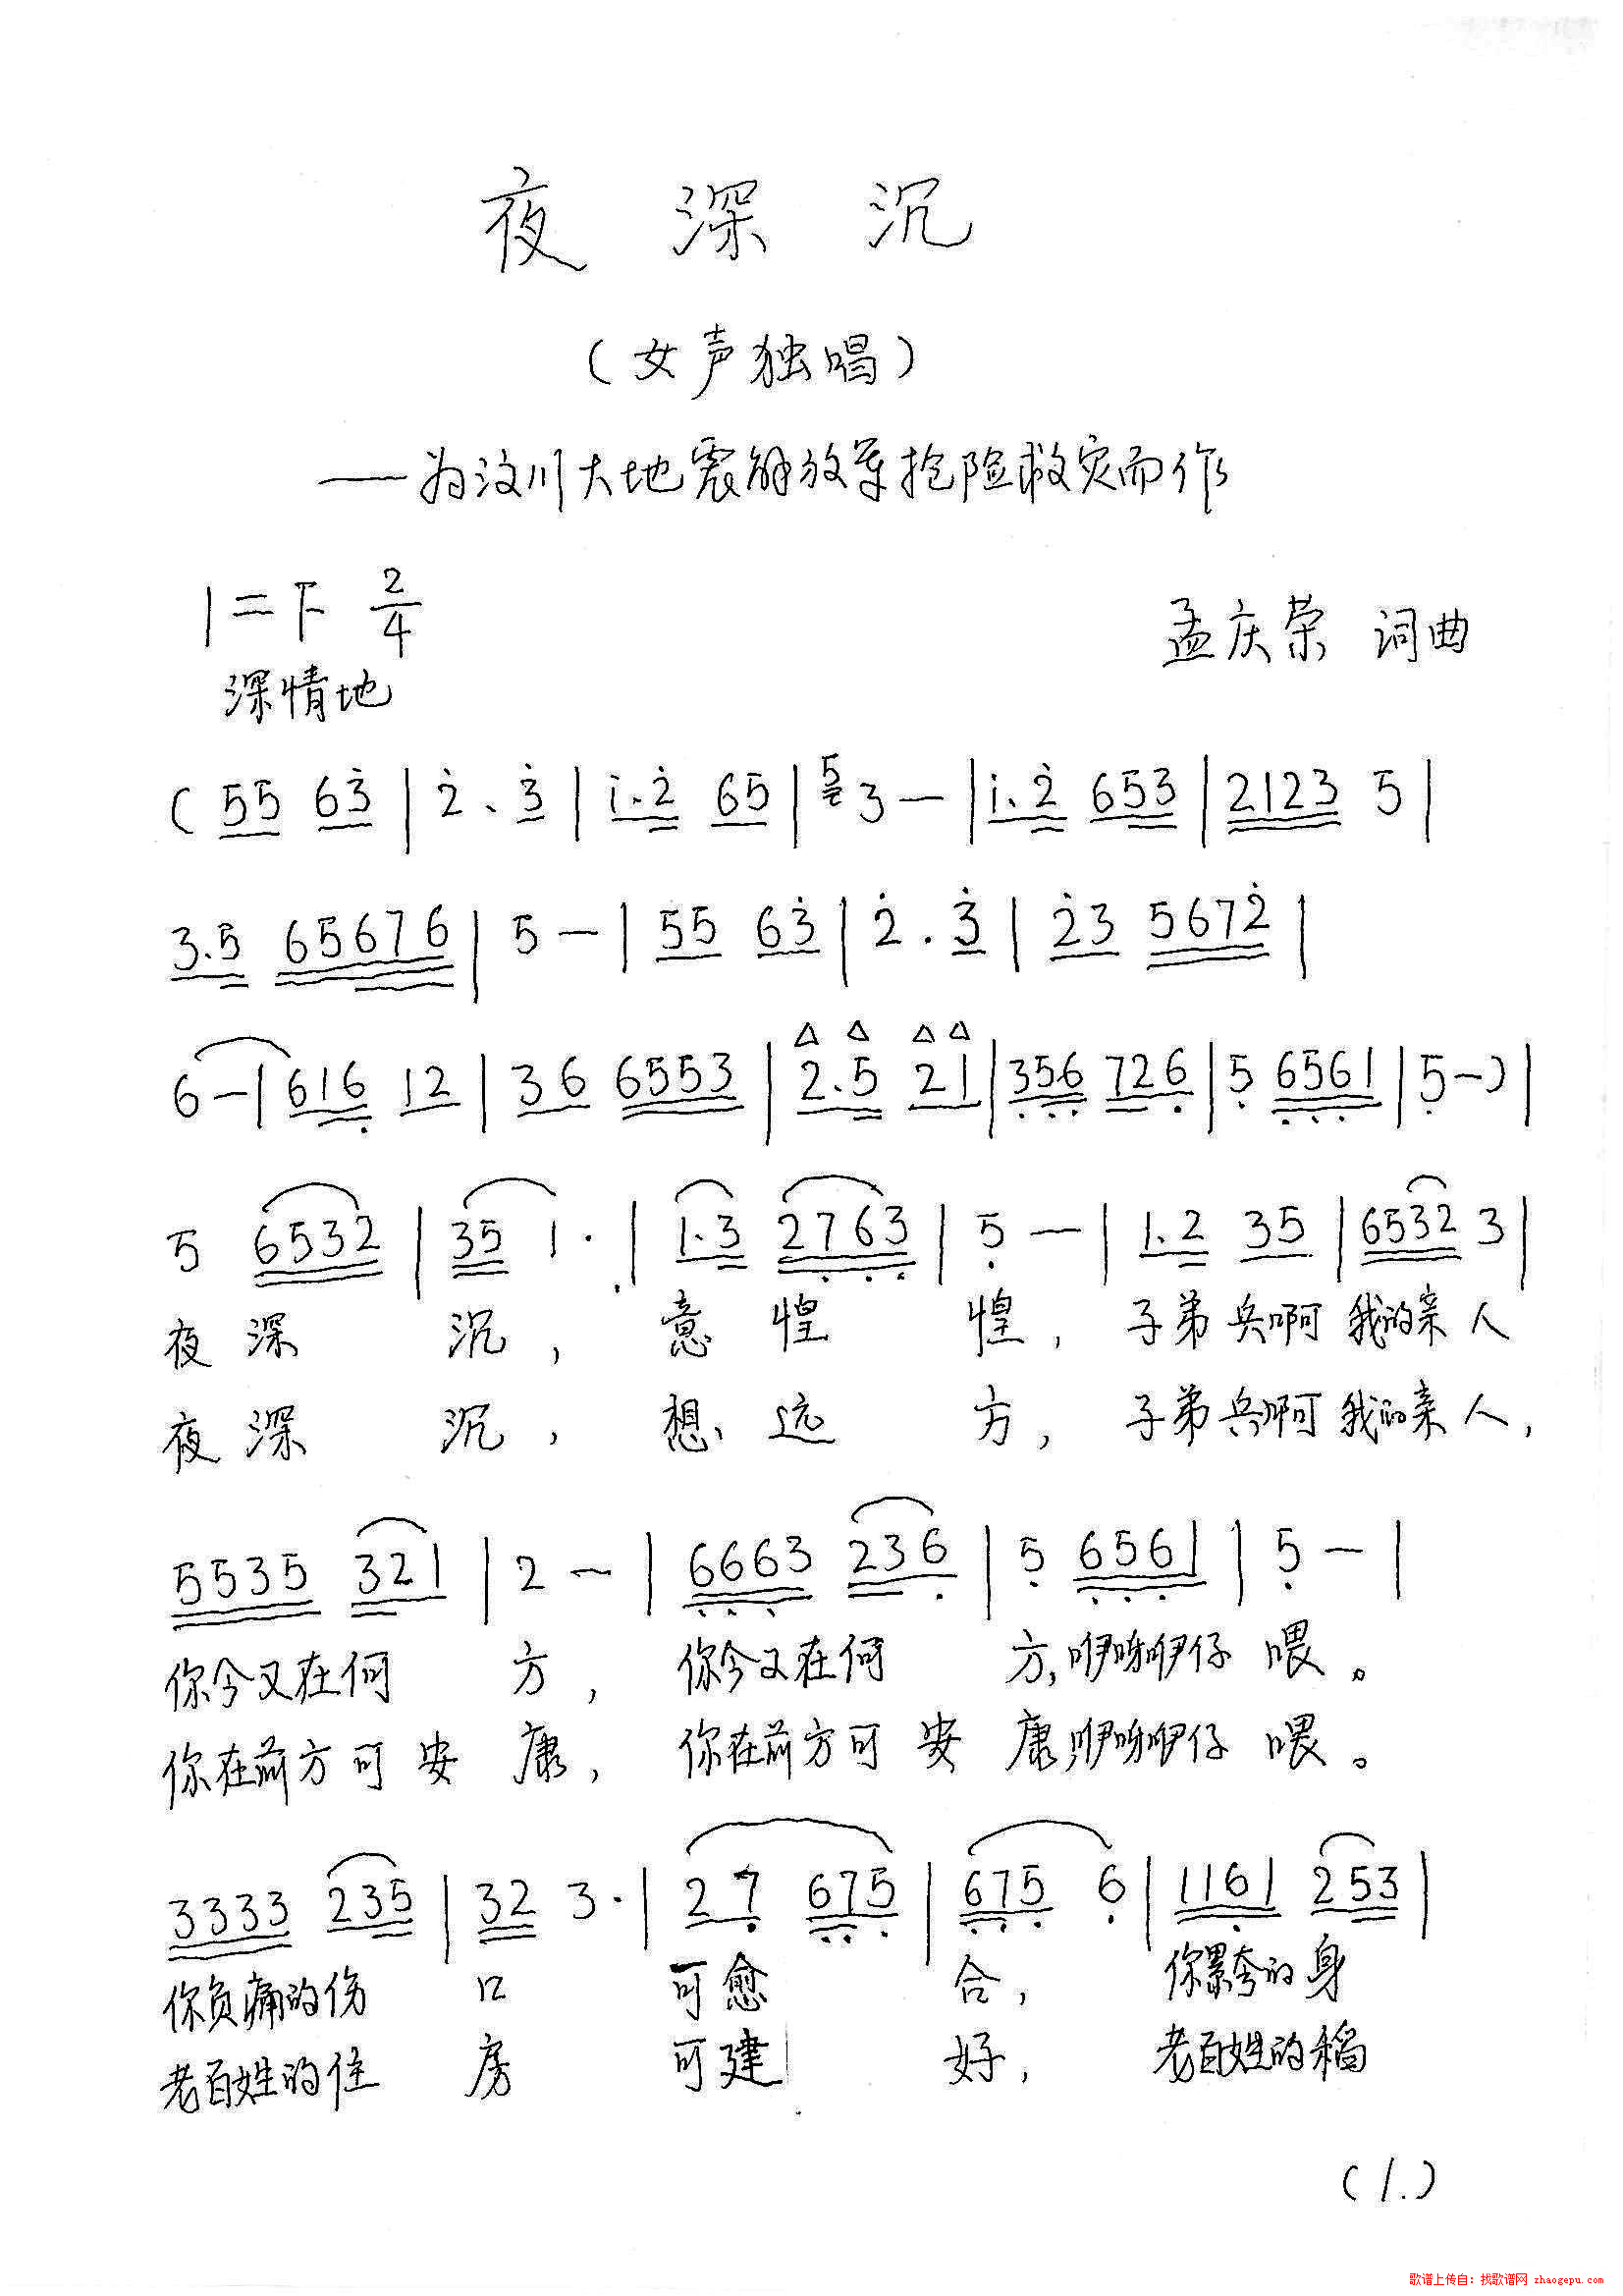 夜深沉
（女声独唱）
——为汶川大地震解放军抢险救灾而作
1=F 2/4
孟庆荣 词曲
深情地
( 55 63 | 2. 3 | 1.2 65 | 5 3 — | 1.2 653 | 2123 5 |
3.5 65676 | 5 — | 55 63 | 2. 3 | 23 5672 |
6 — | 616 12 | 36 6553 | 2.5 21 | 356 726 | 5 6561 | 5 — ) |
5 6532 | 35 1. | 1.3 2763 | 5 — | 1.2 35 | 6532 3 |
夜深沉，意惶惶，子弟兵啊我的亲人
夜深沉，想远方，子弟兵啊我的亲人，
5535 321 | 2 — | 6663 236 | 5 6561 | 5 — |
你今又在何方，你今又在何方，咿呀咿仔喂。
你在前方可安康，你在前方可安康，咿呀咿仔喂。
3333 235 | 32 3. | 27 675 | 675 6 | 1161 253 |
你负痛的伤口可愈合，你累夸的身
老百姓的住房可建好，老百姓的稻
(1.)
歌谱上传自：找歌谱网 zhaogepu.com